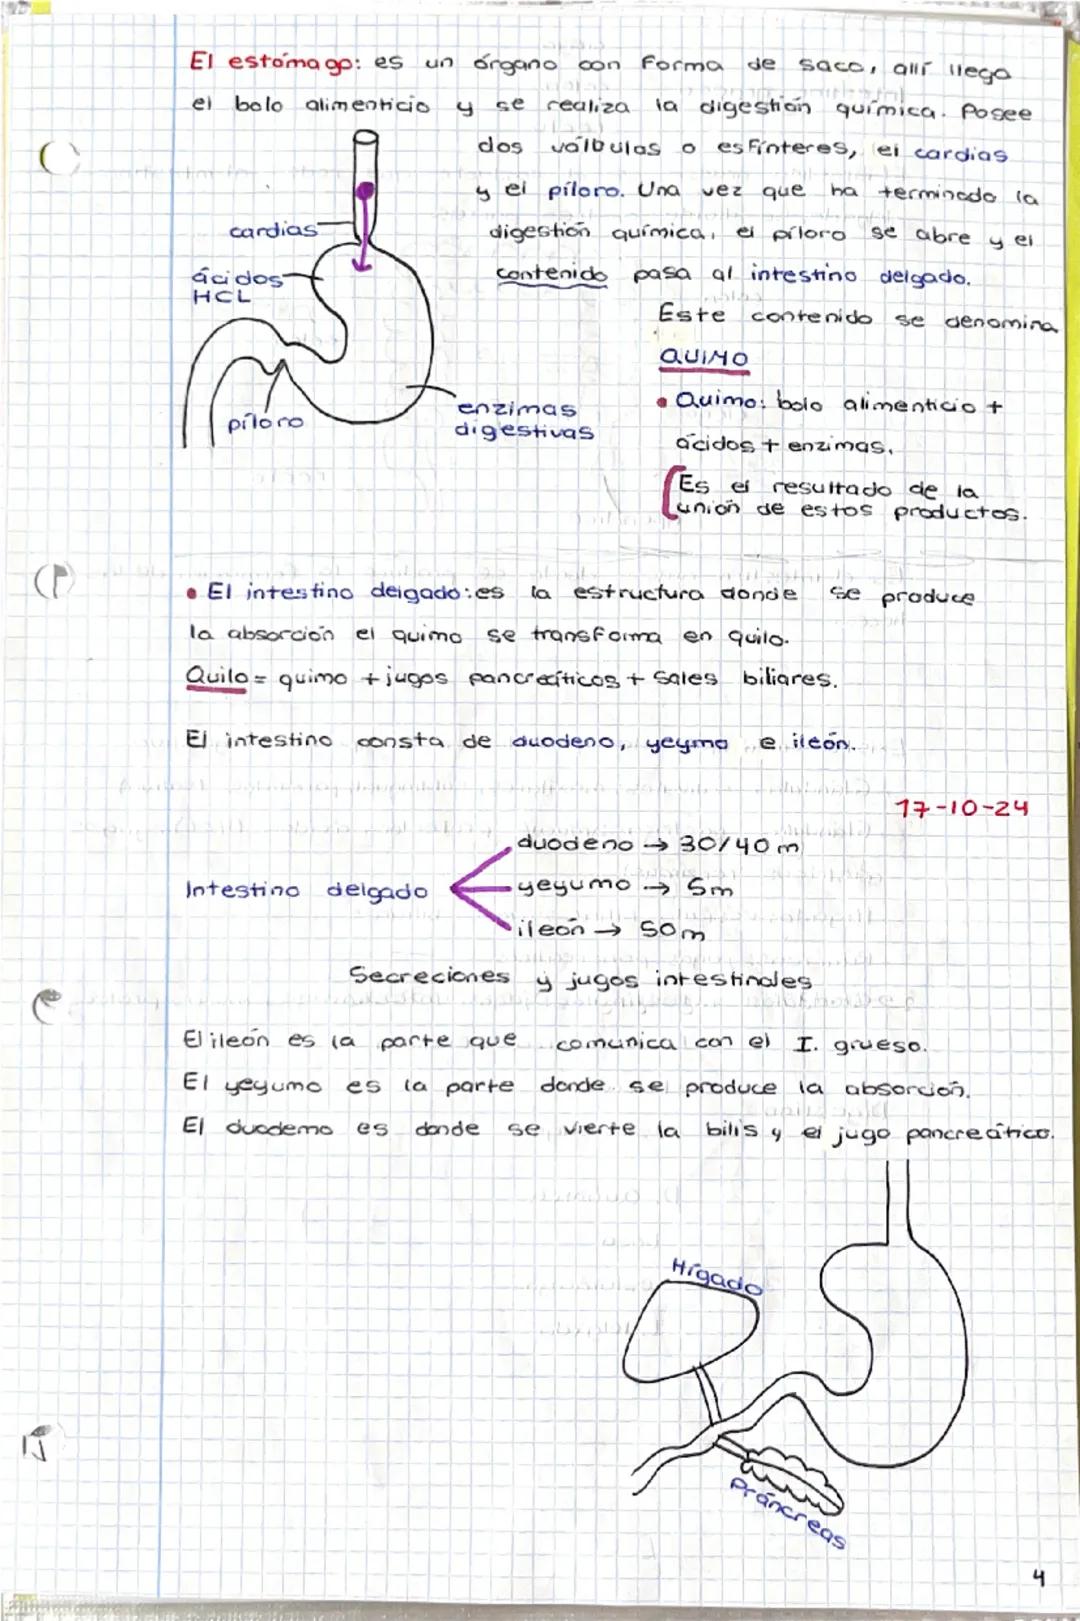 El estómago: es un órgano con forma de saco, allí llega
el bolo alimenticio y se realiza la digestión química. Posee
dos válbulas o esfínteres, el cardias
y el píloro. Una vez que ha terminado la
digestión química, el píloro se abre y el
contenido pasa al intestino delgado.
Este contenido se denomina
QUIMO
• Quimo: bolo alimenticio +
ácidos + enzimas.
Es el resultado de la
unión de estos productos.
cardias
ácidos
HCL
píloro
enzimas
digestivas
• El intestino delgado: es la estructura donde se produce
la absorción el quimo se transforma en quilo.
Quilo = quimo + jugos pancreáticos + sales biliares.
El intestino consta de duodeno, yeymo e ileón.
17-10-24
duodeno → 30/40 m
Intestino delgado
yeyumo → 5m
ileón → 50m
Secreciones y jugos intestinales
El ileón es la parte que comunica con el I. grueso.
El yeyumo es la parte donde se produce la absorción.
El duodemo es donde se vierte la bilis y el jugo pancreático.
Hígado
Práncreas
4